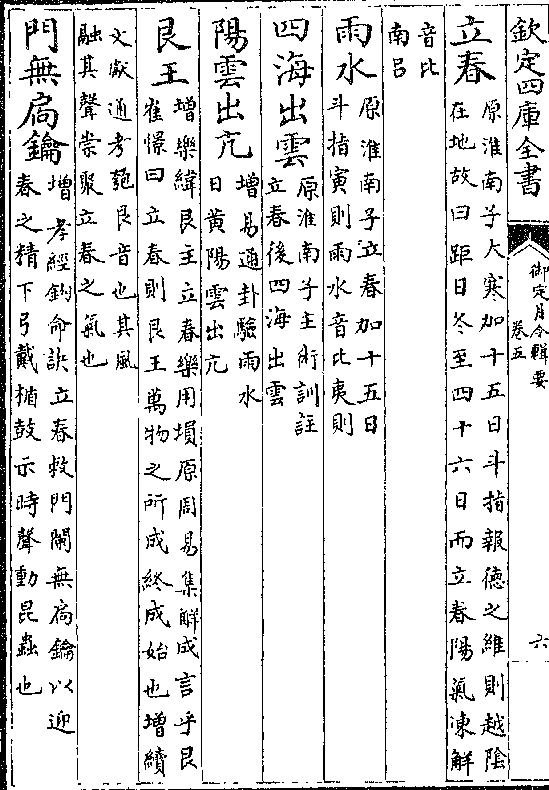 欽定四庫全書
御定月令輯要
卷五
六
立春
原淮南子大寒加十五日斗指報德之維則越陰
在地故曰距日冬至四十六日而立春陽氣凍解
音比
南呂
雨水
原淮南子立春加十五日
斗指寅則雨水音比夷則
四海出雲
原淮南子主術訓註
立春後四海出雲
陽雲出亢
增易通卦驗雨水
日黄陽雲出亢
艮王
增樂緯艮主立春樂用塤原周易集解成言乎艮
崔憬曰立春則艮王萬物之所成終成始也增續
文獻通考匏艮音也其風
融其聲崇聚立春之氣也
門無扃鑰
增孝經鈎命訣立春敕門闌無扃鑰以迎
春之精下弓載楯鼓示時聲動昆蟲也